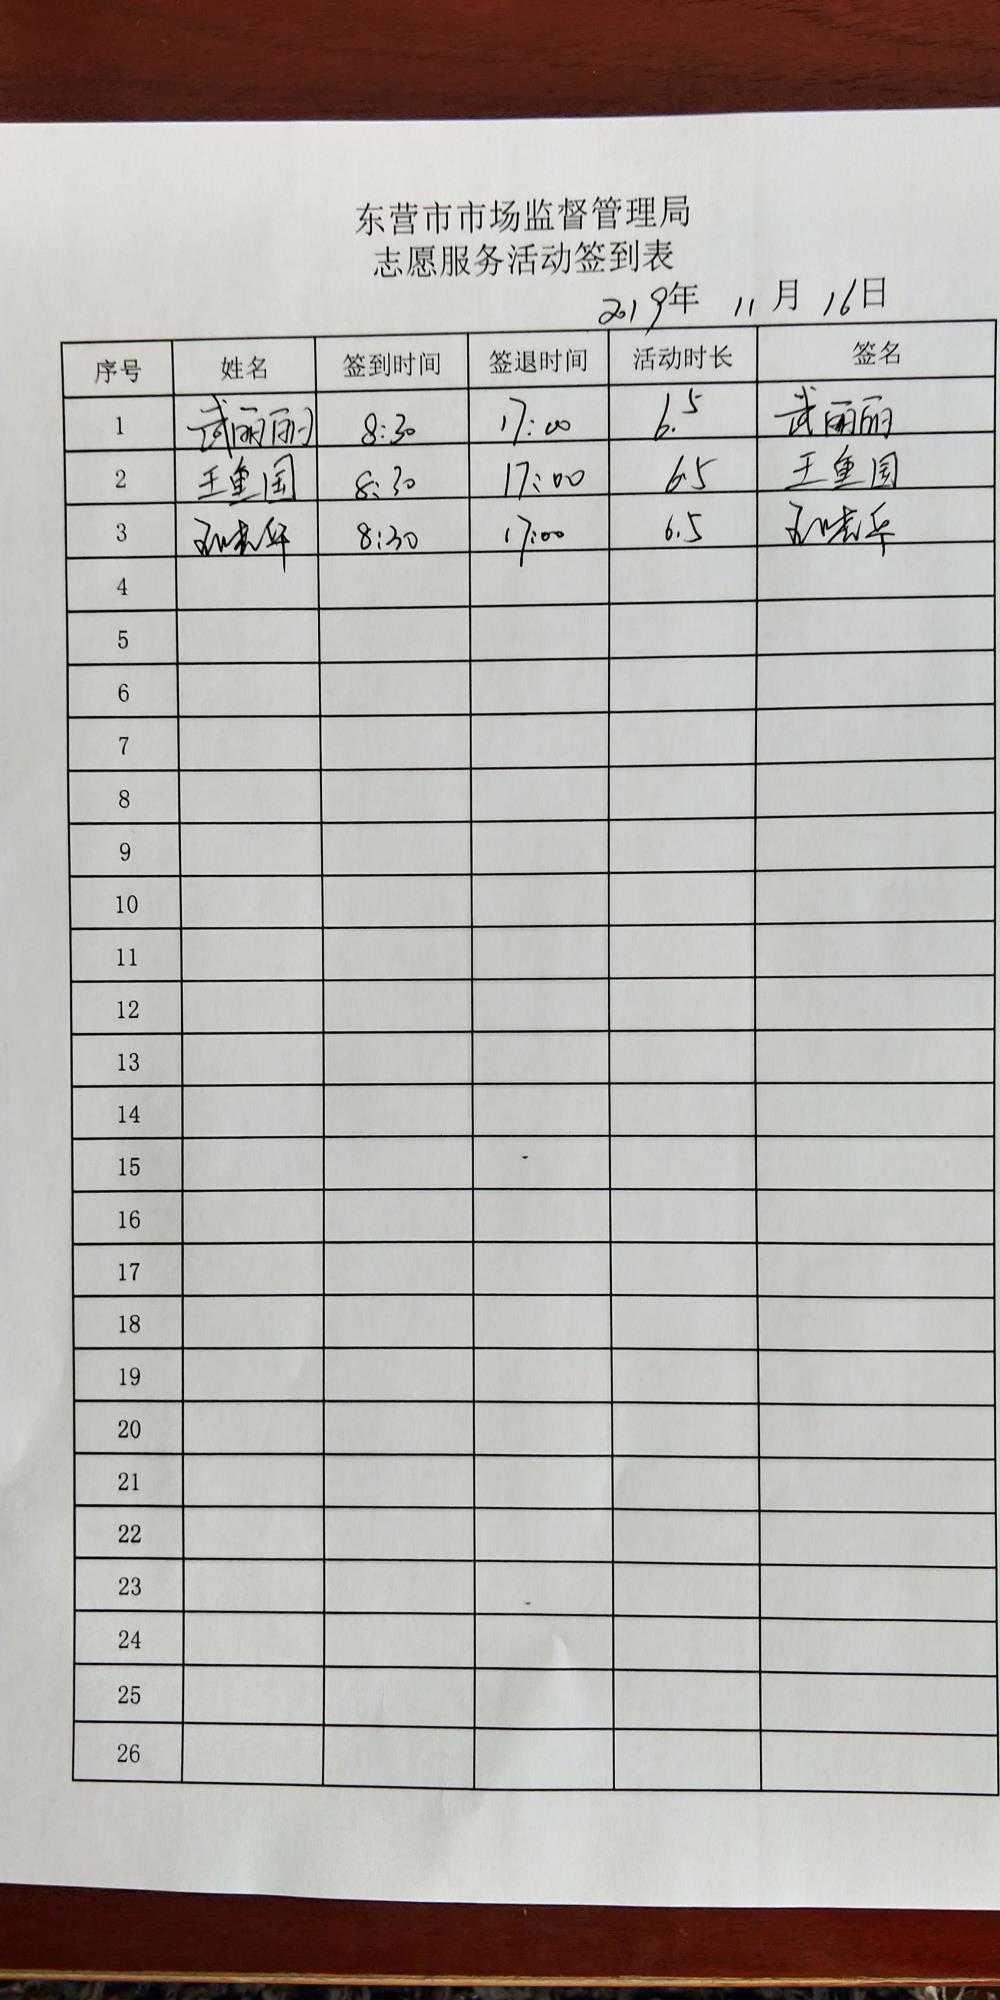 东营市市场监督管理局
志愿服务活动签到表
2019年 11月 16日
序号 姓名 签到时间 签退时间 活动时长 签名
1 武丽丽 8:30 17:00 6.5 武丽丽
2 王重国 8:30 17:00 6.5 王重国
3 8:30 17:00 6.5
4
5
6
7
8
9
10
11
12
13
14
15
16
17
18
19
20
21
22
23
24
25
26